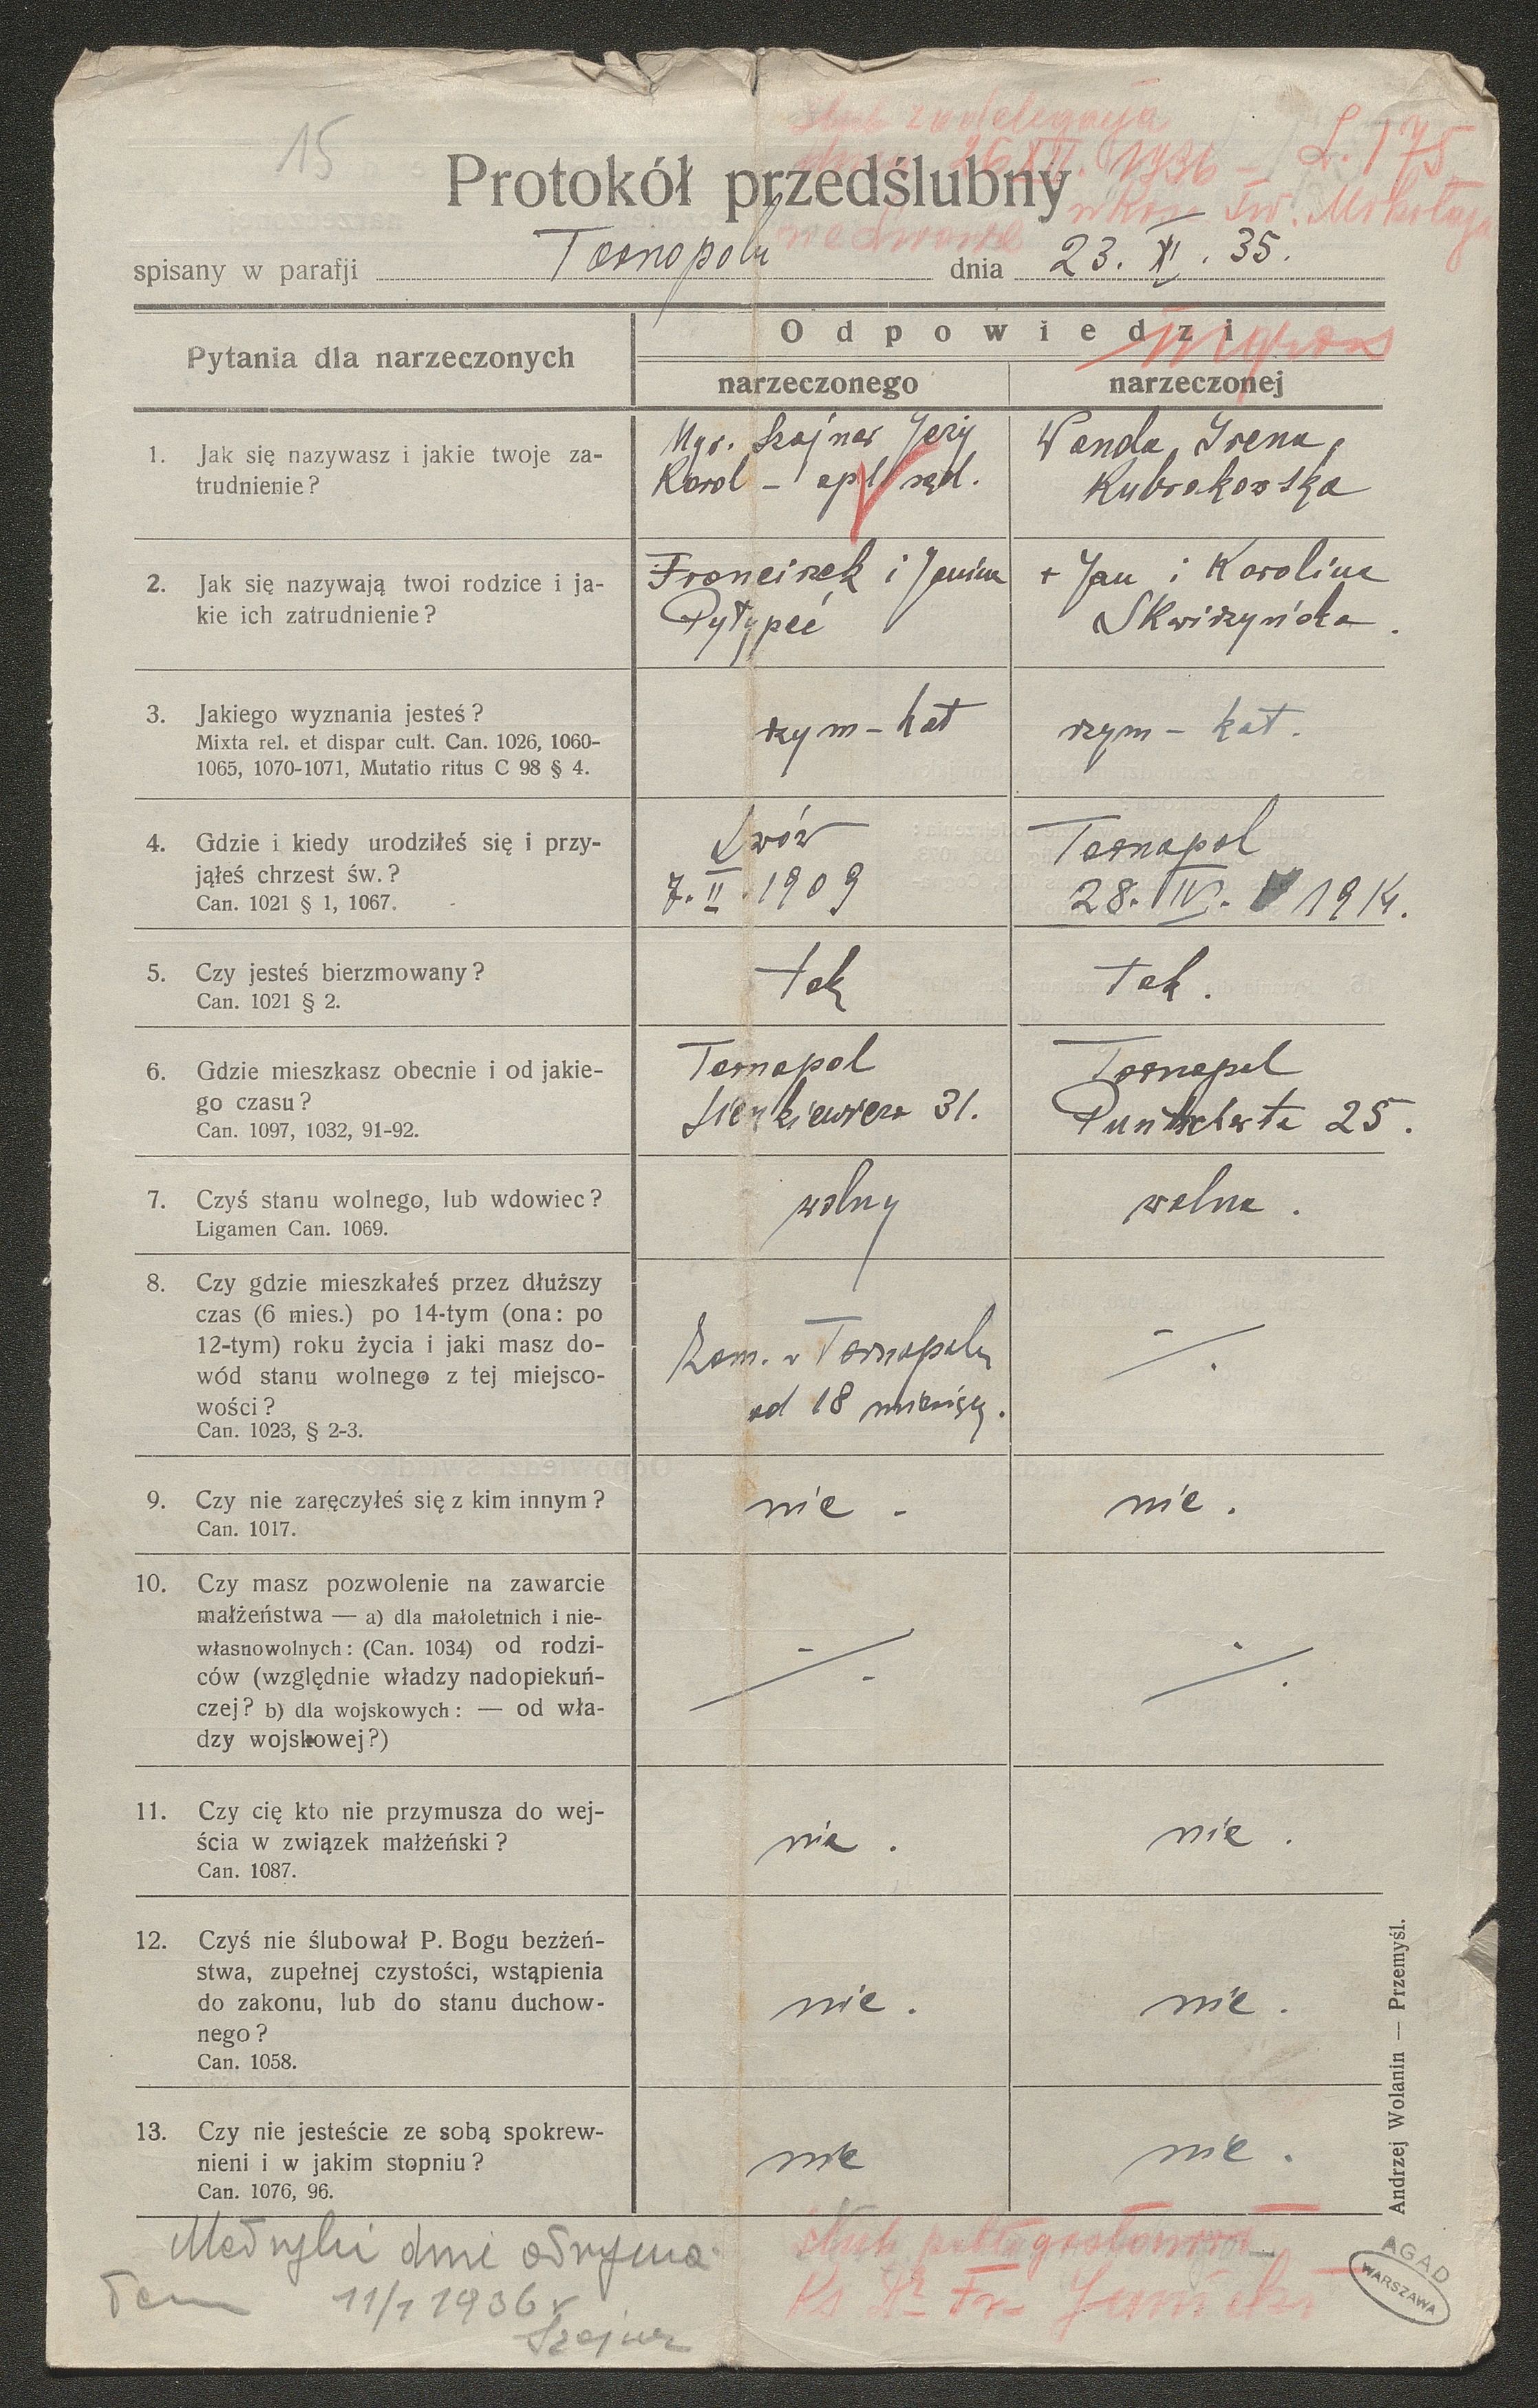 15
ślub z delegacją
dnia 26 XII. 1936 - L. 175
w kośc. św. Mikołaja
we Lwowie
Protokół przedślubny
spisany w parafji Tarnopolu dnia 23. XI. 35.
Pytania dla narzeczonych
Odpowiedzi
narzeczonego narzeczonej
1. Jak się nazywasz i jakie twoje za-
trudnienie?
Mgr. Szajnar Jerzy
Karol - apl. sąd.
Wanda, Irena,
Kubrakowska
2. Jak się nazywają twoi rodzice i ja-
kie ich zatrudnienie?
Franciszek i Janina
Pytypeć
+ Jan i Karolina
Skwirzyńska.
3. Jakiego wyznania jesteś?
Mixta rel. et dispar cult. Can. 1026, 1060-
1065, 1070-1071, Mutatio ritus C 98 § 4.
rzym-kat
rzym-kat.
4. Gdzie i kiedy urodziłeś się i przy-
jąłeś chrzest św.?
Can. 1021 § 1, 1067.
Lwów
7. II. 1909
Tarnopol
28. IV. 1914.
5. Czy jesteś bierzmowany?
Can. 1021 § 2.
tak
tak.
6. Gdzie mieszkasz obecnie i od jakie-
go czasu?
Can. 1097, 1032, 91-92.
Tarnopol
Sienkiewicza 31.
Tarnopol
Puntscherta 25.
7. Czyś stanu wolnego, lub wdowiec?
Ligamen Can. 1069.
wolny
wolna.
8. Czy gdzie mieszkałeś przez dłuższy
czas (6 mies.) po 14-tym (ona: po
12-tym) roku życia i jaki masz do-
wód stanu wolnego z tej miejsco-
wości?
Can. 1023, § 2-3.
Zam. w Tarnopolu
od 18 miesięcy.
9. Czy nie zaręczyłeś się z kim innym?
Can. 1017.
nie -
nie.
10. Czy masz pozwolenie na zawarcie
małżeństwa — a) dla małoletnich i nie-
własnowolnych: (Can. 1034) od rodzi-
ców (względnie władzy nadopiekuń-
czej? b) dla wojskowych: — od wła-
dzy wojskowej?)
11. Czy cię kto nie przymusza do wej-
ścia w związek małżeński?
Can. 1087.
nie.
nie.
12. Czyś nie ślubował P. Bogu bezżeń-
stwa, zupełnej czystości, wstąpienia
do zakonu, lub do stanu duchow-
nego?
Can. 1058.
nie.
nie.
13. Czy nie jesteście ze sobą spokrew-
nieni i w jakim stopniu?
Can. 1076, 96.
nie
nie.
Andrzej Wolanin — Przemyśl.
Metryki dnie otrzyma
łem 11/1 1936 r
Szajnar
ślub pobłogosławił
Ks Dr Fr.
AGAD
WARSZAWA